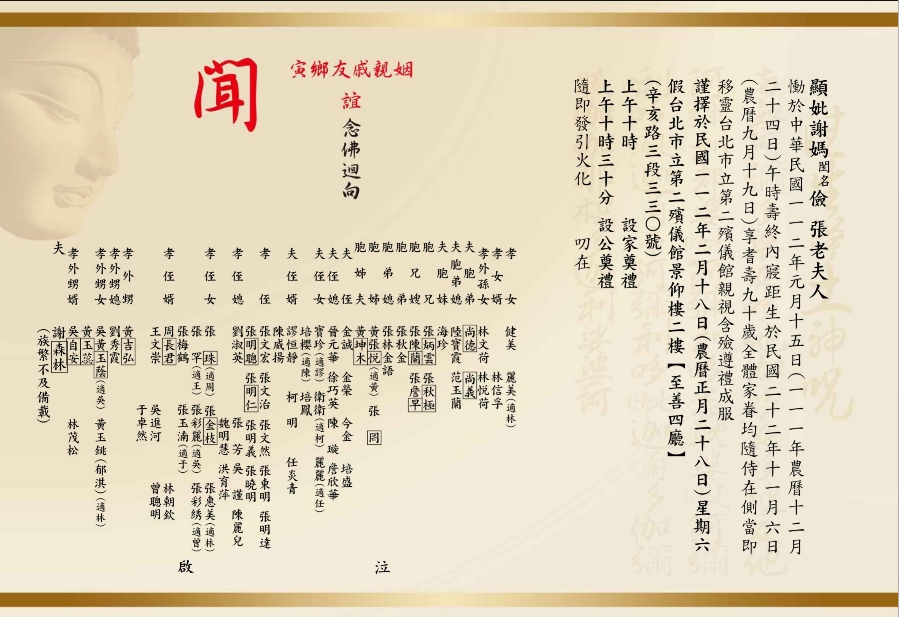 顯妣謝媽閨名儉 張老夫人
慟於中華民國一一二年元月十五日(一一一年農曆十二月
二十四日)午時壽終內寢距生於民國二十二年十一月六日
(農曆九月十九日)享耆壽九十歲全體家眷均隨侍在側當即
移靈台北市立第二殯儀館親視含殮遵禮成服
謹擇於民國一一二年二月十八日(農曆正月二十八日)星期六
假台北市立第二殯儀館景仰樓二樓【至善四廳】
(辛亥路三段三三〇號)
上午十時 設家奠禮
上午十時三十分 設公奠禮
隨即發引火化 叨在
姻親戚友鄉寅
誼 念佛迴向
聞
孝女 健美 麗美(適林)
孝外孫女 林文荷 林悦荷 林信孚
夫胞弟媳 陸寶霞 范玉蘭
夫胞妹 海珍
胞兄 張炳雲 張秋極
胞兄嫂 張陳蘭 張詹早
胞弟 張秋金
胞弟媳 張林金語
胞姊 黃張悅(適黃) 張 岡
胞姊夫 黃坤木
夫侄 金誠 金榮 今金 培盛
夫侄媳 晉元華 徐巧英 陳璇 詹欣華
夫侄女 寶珍(適謬) 衛衛(適柯) 麗麗(適任)
培櫻(適陳) 培鳳
夫侄婿 謬恒靜 柯明 任炎青
陳威揚
孝侄 張文宏 張文治 張文然 張東明 張明達
張明聰 張明仁 張明義 張曉明
孝侄媳 劉淑英 魏明慧 洪育萍
張芳 吳謹 陳麗兒
孝侄女 張珠(適周) 張金枝 張惠美(適林)
張罕(適王) 張彩麗(適吳) 張彩綉(適曾)
張梅鶴 張玉湳(適于)
孝侄婿 周長君 吳進河 林朝欽
王文崇 于卓然 曾聰明
孝外甥 黃吉弘
孝外甥媳 劉秀霞
孝外甥女 吳黃玉蔭(適吳) 黃玉銚(郁淇)(適林)
黃玉蕊
孝外甥婿 吳自安 林茂松
夫 謝森林
(族繁不及備載)
泣
啟